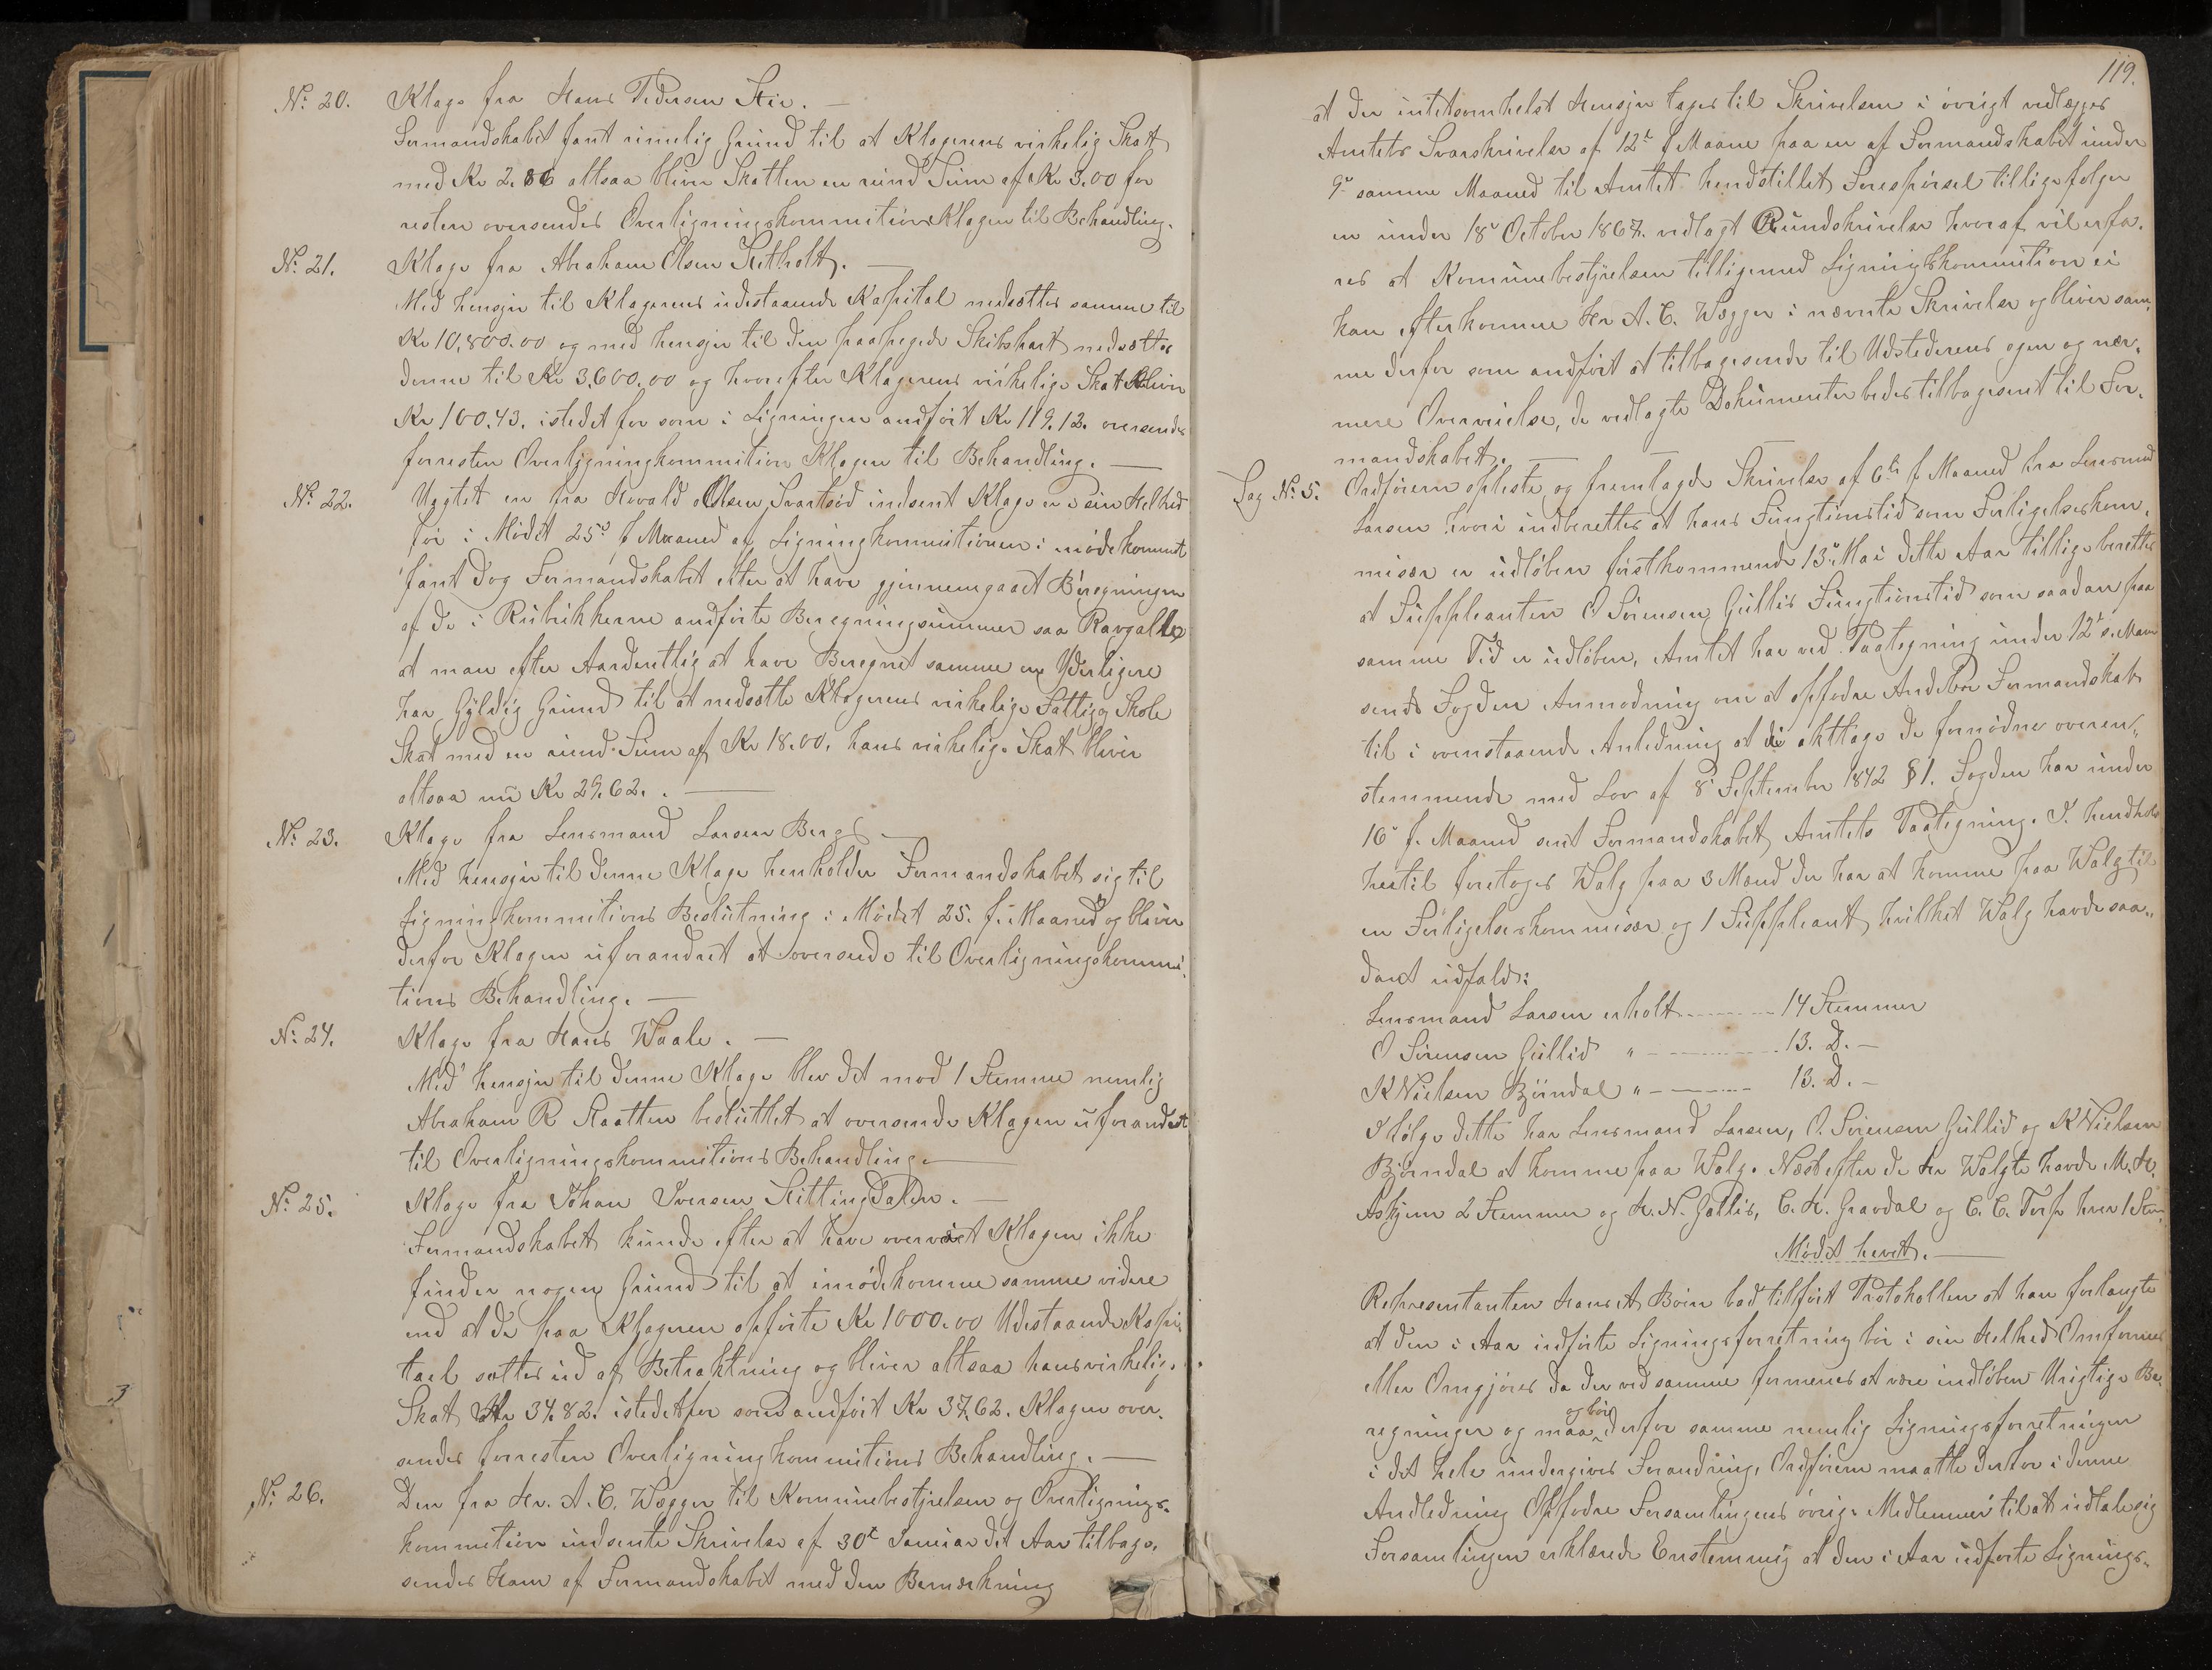 No. 20. Klage fra Hans Pedersen Stie. —
Formandskabet fant rimelig Grund til at Klagerens virkelig Skat
med Kr 2.86 altsaa bliver Skatten en rund Sum af Kr 3.00 for
resten oversendes Overligningskommitions Klagen til Behandling.
No. 21. Klage fra Abraham Olsen Sletholt. —
Med hensyn til Klagerens udestaaende Kapital nedsættes samme til
Kr 10,800.00 og med hensyn til den paapegede Skibspart nedsættes
denne til Kr 3,600.00 og hvorefter Klagerens virkelige Skat bliver
Kr 100.43. istedet for som i Ligningen anført Kr 119.12. oversendes
forresten Overligningkommition Klagen til Behandling. —
No. 22. Uagtet en fra Hovald Olsen Svartsød indsent Klage er i sin Helhed
før i Mødet 25d f Maaned af Ligningkommitionen imødekommet
fant dog Formandskabet efter at have gjennemgaaet Beregningen
af de i Rubrikkerne andførte Beregningsummer saa
at man efter at have Beregnet samme en Yderligere
har Gyldig Grund til at nedsætte Klagerens virkelige Fattig og Skole
Skat med en rund Sum af Kr 18.00, hans virkelige Skat bliver
altsaa nu Kr 29.62. . —
No. 23. Klage fra Lensmand Larsen Berg —
Med hensyn til denne Klage henholder Formandskabet sig til
Ligningkommitions Beslutning i Mødet 25. f. Maaned og bliver
derfor Klagen uforandret at oversende til Overligningskommi-
tions Behandling. —
No. 24. Klage fra Hans Waale. —
Med hensyn til denne Klage blev det mod 1 Stemme nemlig
Abraham R Raatten besluttet at oversende Klagen uforandret
til Overligningskommitions Behandling. —
No. 25. Klage fra Johan Iversen Kittingdalen. —
Formandskabet kunde efter at have overveiet Klagen ikke
finder nogen Grund til at imødekomme samme videre
end at de paa Klageren opførte Kr 1000.00 Udestaaende Kapi-
tael sættes ud af Betraktning og bliver altsaa hans virkelig.
Skat Kr 34.82. istedetfor som andført Kr 37.62. Klagen over-
sendes forresten Overligningkommitions Behandling. —
No. 26. Den fra Hr. A. C. Wegger til Komunebestyrelsen og Overlignings-
kommition indsente Skrivelse af 30t Januar det Aar tilbage-
sendes Ham af Formandskabet med den Bemærkning
119.
at der intetsomhelst Hensyn tages til Skrivelsen i øvrigt vedlægges
Amtets Svarskrivelse af 12t f Maane paa en af Formandskabet under
9d samme Maaned til Amtet henstillet Forespørsel tillige følger
en under 18d October 1867. vedlagt Rundskrivelse hvoraf vil erfa-
res at Komunebestyrelsen tilligemed Ligningskommition ei
kan efterkomme Hr A. C. Wegger i nævnte Skrivelse og bliver sam-
me derfor som andført at tilbagesende til Udstederens egen og nær-
mere Overveielse, de vedlagte Dokumenter bedes tilbagesent til For-
mandskabet. —
Sag No. 5. Ordføreren opleste og fremlagde Skrivelse af 6te f Maaned fra Lensmand
Larsen hvori indberettes at hans Fungtionstid som Forligelseskom-
misær er udløben førstkommende 13d Mai dette Aar tillige berettes
at Suppleanten O Sørensen Gullis Fungtionstid som saadan paa
samme Tid er udløben, Amtet har ved Paategning under 12t s. Maan
sendt Fogden Anmodning om at opfodre Andebu Formandskab
til i ovenstaaende Anledning at iakttage de fornødne overen-
stemmende med Lov af 8d September 1842 § 1. Fogden har under
16d f. Maaned sent Formandskabet Amtets Paategning. I hendhold
hertil foretoges Walg paa 3 Mænd der har at komme paa Walg til
en Forligelseskommisær og 1 Suppleant hvilket Walg havde saa-
dant udfald:
Lensmand Larsen erholt - - - - 14 Stemmer
O Sørensen Gullid " - - - - 13. D. —
K Nielsen Bjørndal " - - - - 13. D. —
Ifølge dette har Lensmand Larsen, O. Sørensen Gullid og K Nielsen
Bjørndal at komme paa Walg. Næst efter de her Walgte havde M. H.
Askjem 2 Stemmer og H. N. Gallis, C. H. Gravdal og C. C. Torp hver 1 Stem
Mødet hevet. —
Representanten Hans A Bøen bad tilført Protokollen at han forlangte
at den i Aar indførte Ligningsforretning bør i sin Helhed Omformes
eller Omgjøres da der ved samme formenes at være indløben Urigtige Be-
regninger og maa og bør derfor samme nemlig Ligningsforretningen
i det hele undergives Forandring, Ordføreren maatte derfor i denne
Andledning Opfodre Forsamlingens øvrige Medlemmer til at udtale sig
Forsamlingen erklærede Enstemmig at den i Aar udførte Lignings-